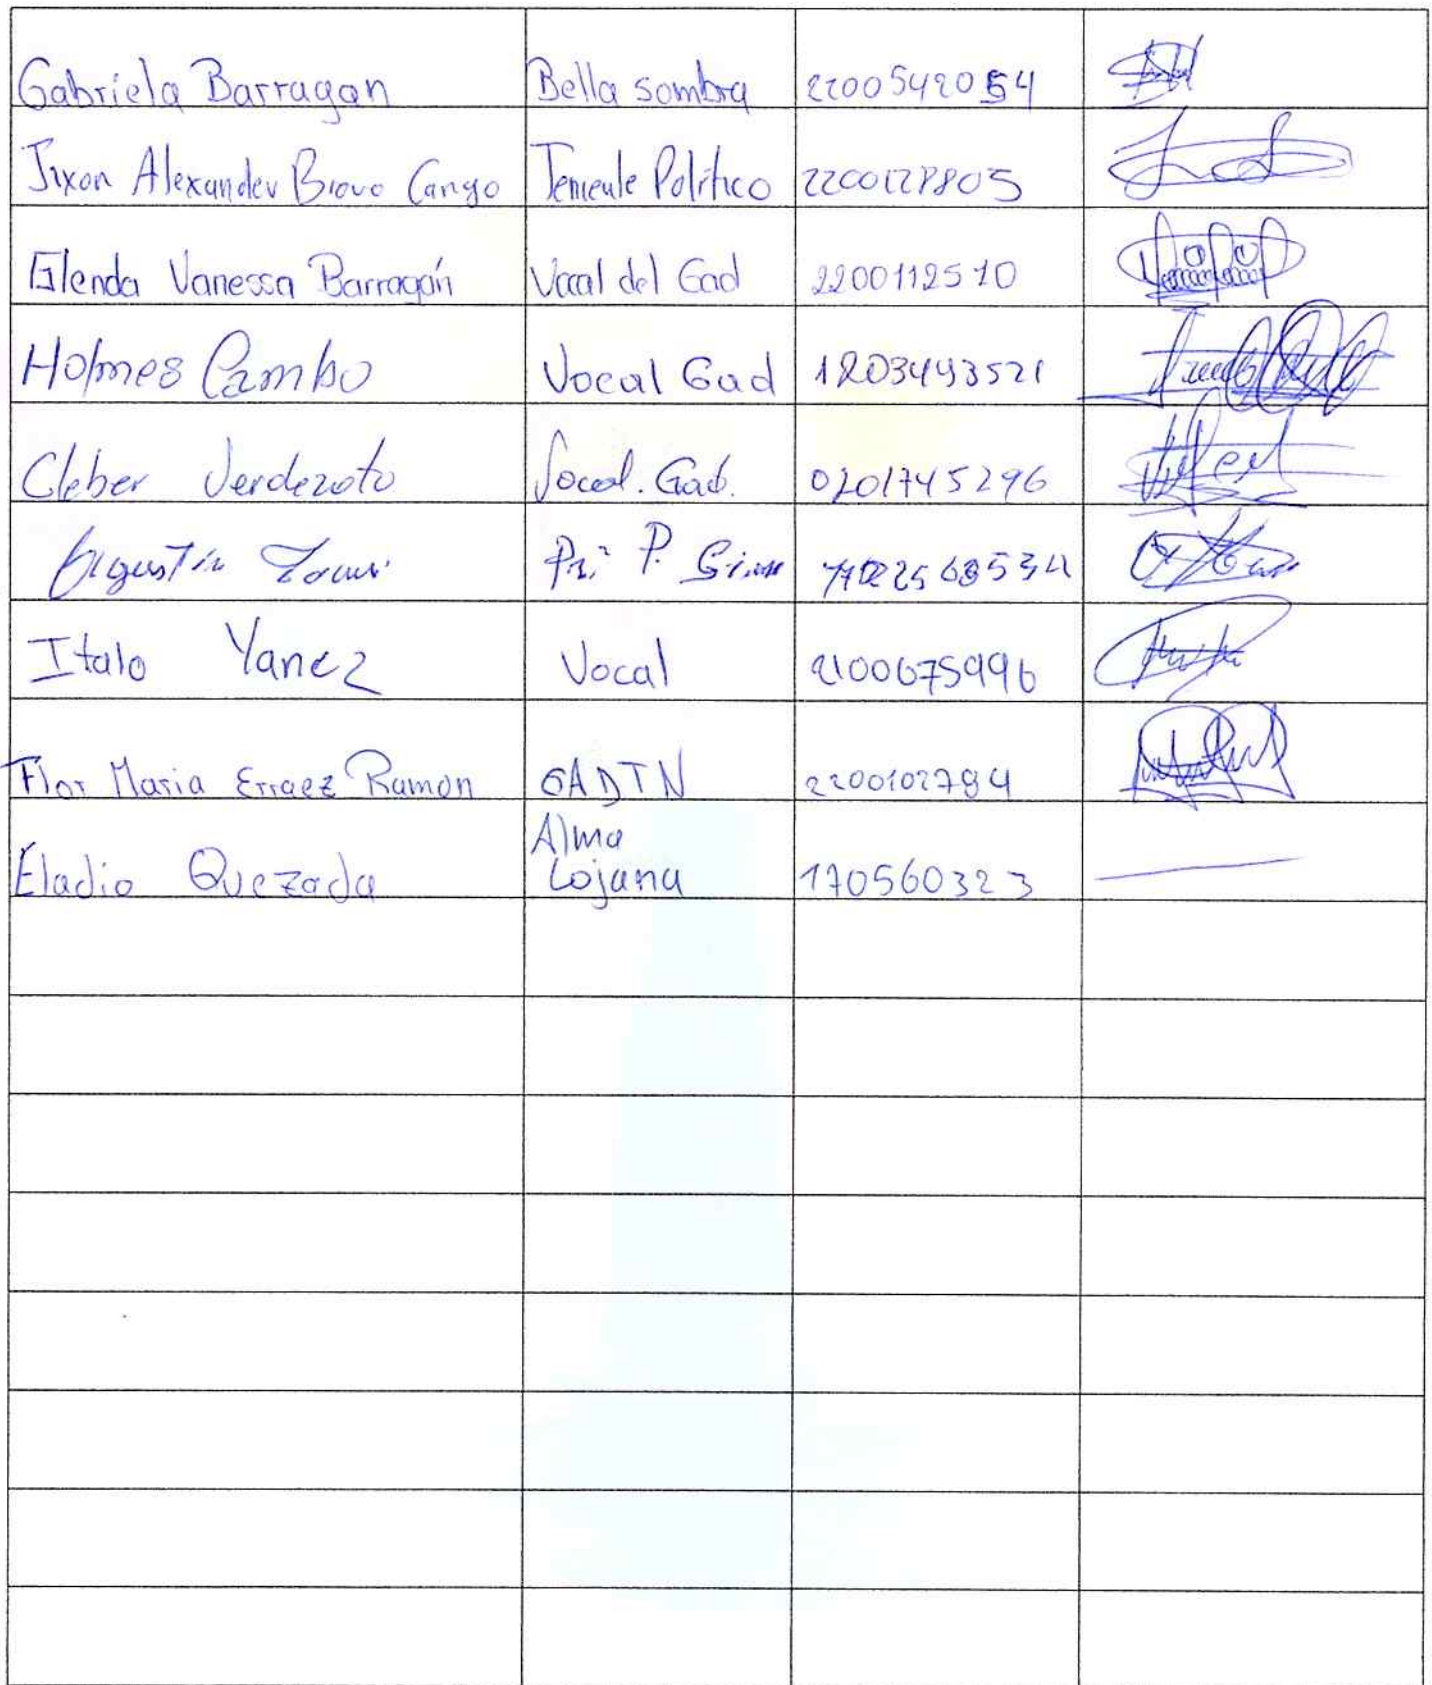 Gabriela Barragan Bella sombra 2200542054
Jixon Alexander Bravo Cango Teniente Político 2200128805
Glenda Vanessa Barragán Vocal del Gad 2200112510
Holmes Cambo Vocal Gad 1203493521
Cleber Verdezoto Vocal. Gad. 0201745296
Agustin
Italo Yanez Vocal 2100675996
Flor Maria Erraez Ramon GADTN 2200102794
Alma
Eladio Quezada Lojana 170560323